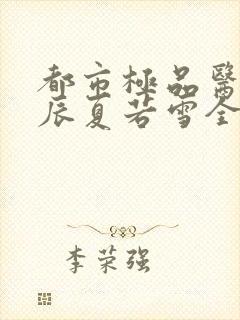 都市極品醫
辰夏若雪全
李荣强